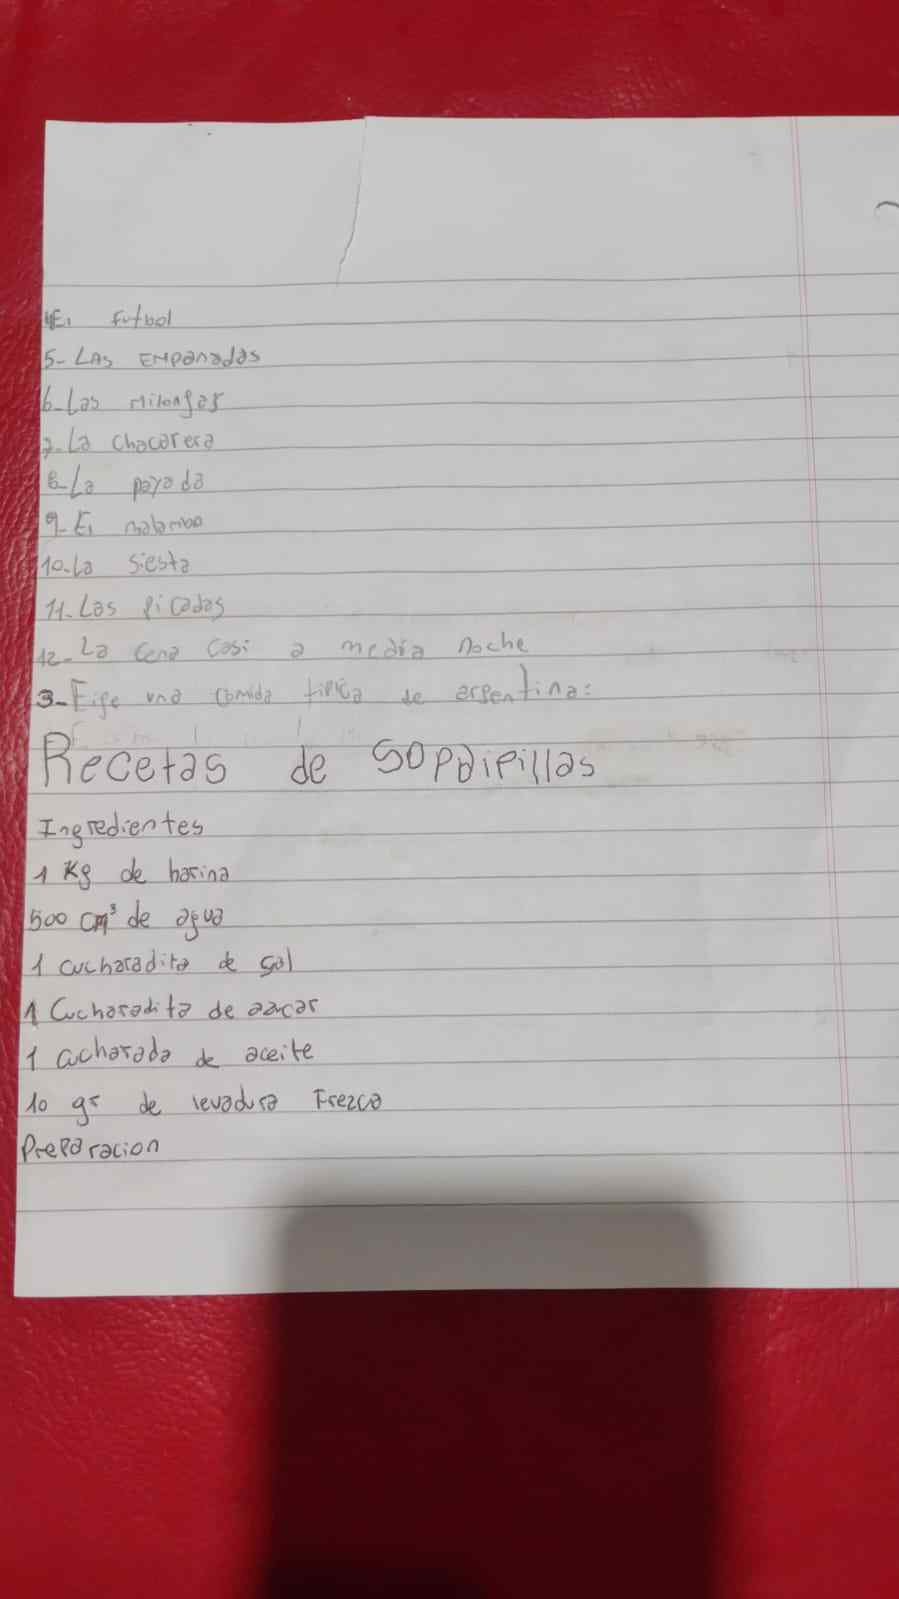 4E. Futbol
5- LAS EMPanadas
6-Las milongas
7-La chacarera
8-La payada
9-El malambo
10-La siesta
11-Las picadas
12-La cena casi a media noche
3-Elige una comida tipica de argentina:
Recetas de Sopaipillas
Ingredientes
1 Kg de harina
500 cm³ de agua
1 cucharadita de sal
1 Cucharadita de azucar
1 cucharada de aceite
10 gr de levadura Frezca
Preparacion